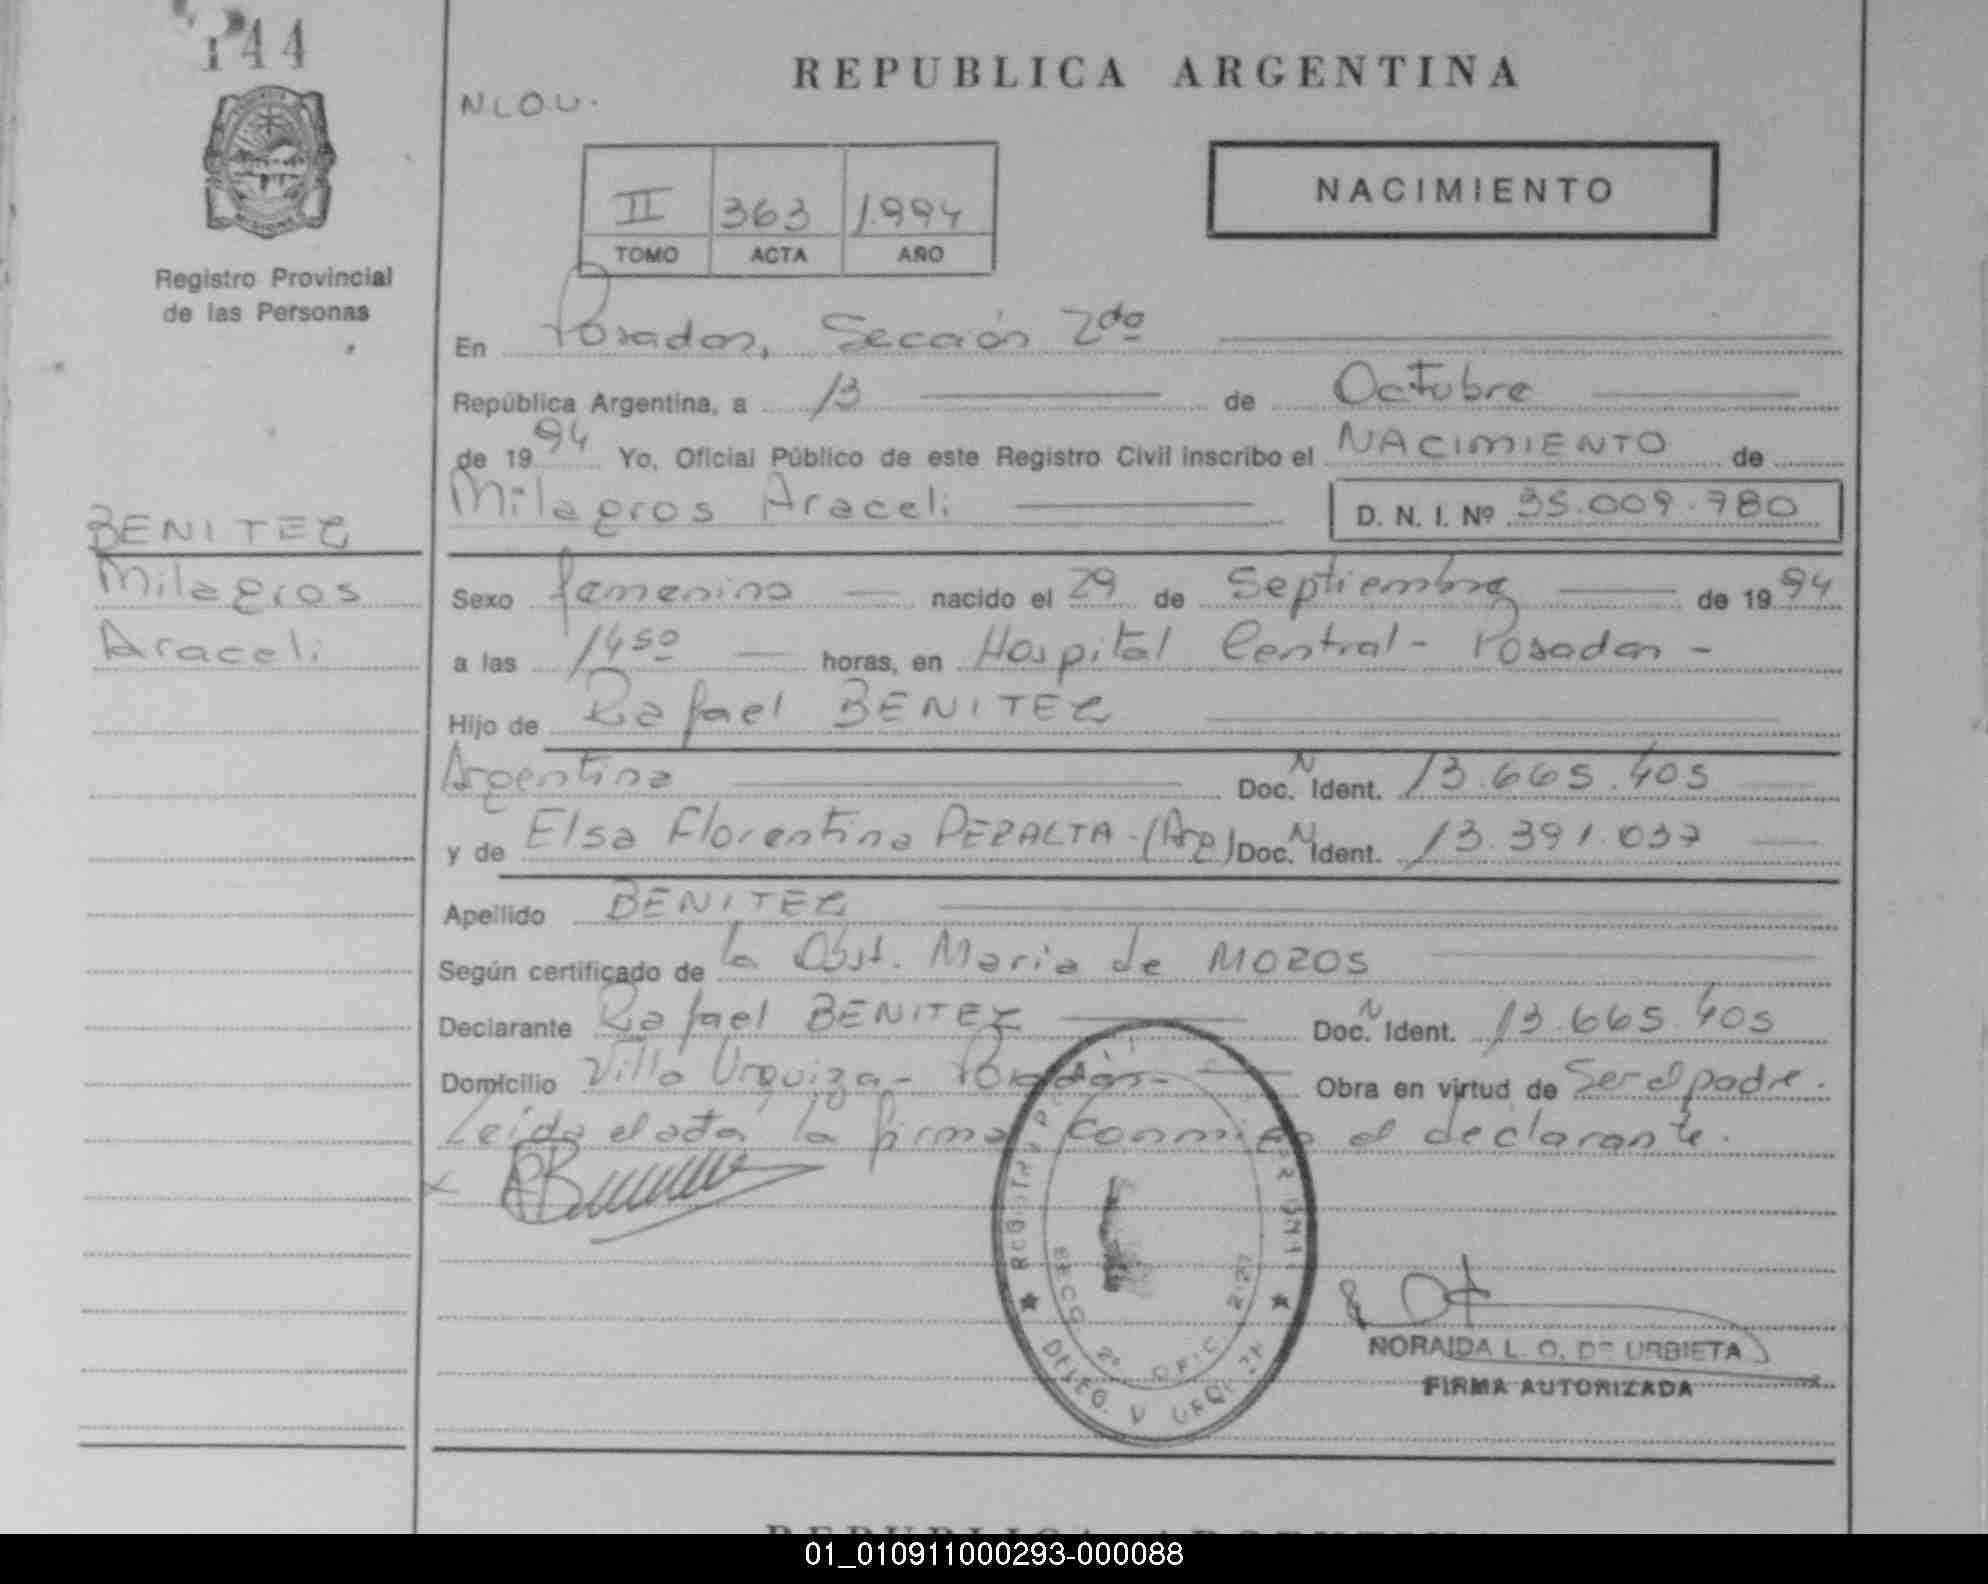 144
REPUBLICA ARGENTINA
N.L.O.U.
NACIMIENTO
II 363 1.994
TOMO ACTA AÑO
Registro Provincial
de las Personas
En Posadas, Sección 2da
República Argentina, a 13 de Octubre
de 1994 Yo, Oficial Público de este Registro Civil inscribo el NACIMIENTO de
Milagros Araceli D. N. I. Nº 35.009.780
BENITEZ
Milagros
Araceli
Sexo femenino nacido el 29 de Septiembre de 1994
a las 1450 horas, en Hospital Central - Posadas -
Hijo de Rafael BENITEZ
Argentina Doc. N Ident. 13.665.405
y de Elsa Florentina PERALTA - (Arg) Doc. N Ident. 13.391.037
Apellido BENITEZ
Según certificado de la Obst. Maria de MOZOS
Declarante Rafael BENITEZ Doc. N Ident. 13.665.405
Domicilio Villa Urquiza - Posadas - Obra en virtud de Ser el padre.
Leída el acta la firma conmigo el declarante.
NORAIDA L. O. DE URBIETA
FIRMA AUTORIZADA
SECC 2º OFIC
DELEG. V URQUIZA
REPUBLICA ARGENTINA
01_010911000293-000088